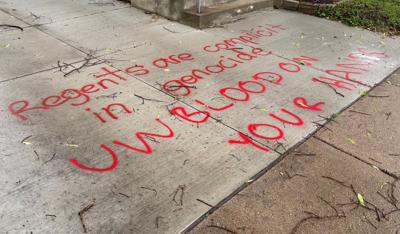 Regents are complicit
in genocide
UW BLOOD ON
YOUR HANDS